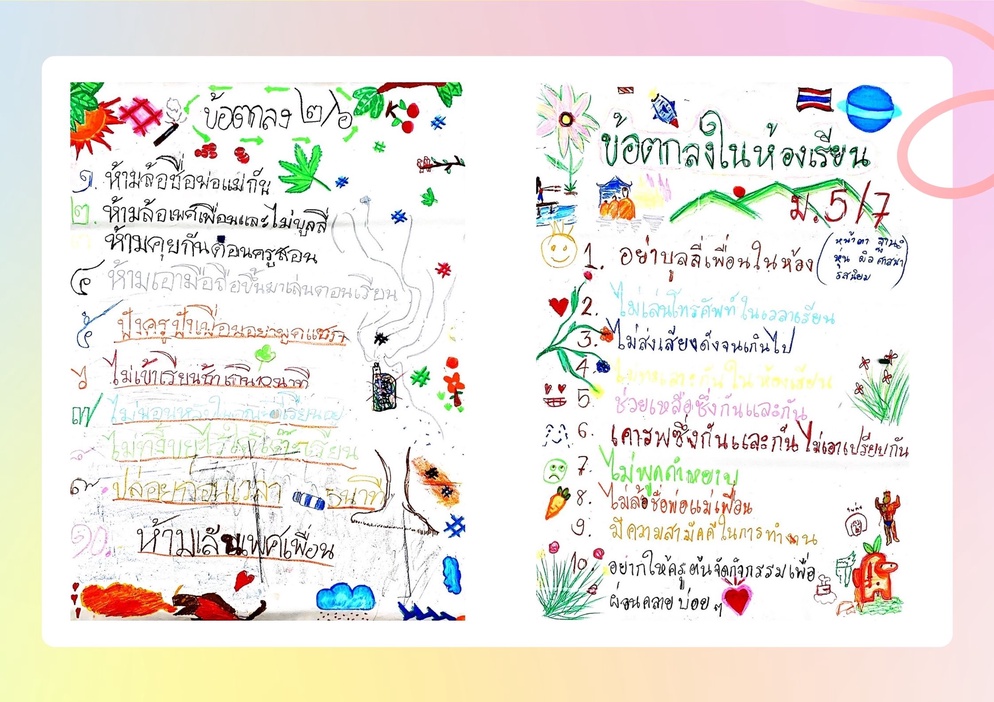 ข้อตกลง ๒/๖
๑. ห้ามล้อชื่อพ่อแม่กัน
๒. ห้ามล้อเพศเพื่อนและไม่บูลลี่
ห้ามคุยกันตอนครูสอน
๔ ห้ามเอามือถือขึ้นมาเล่นตอนเรียน
๕
๖ ไม่เข้าเรียนช้าเกิน 10 นาที
๗
ไม่ทิ้งขยะไว้ใต้โต๊ะเรียน
๙. ปล่อยก่อนเวลา ๕ นาที
๑๐. ห้ามเล่นเพศเพื่อน
ข้อตกลงในห้องเรียน
ม.5/7
1. อย่าบูลลี่เพื่อนในห้อง
(หน้าตา ฐานะ
หุ่น ผิว ศาสนา
รสนิยม)
2. ไม่เล่นโทรศัพท์ในเวลาเรียน
3. ไม่ส่งเสียงดังจนเกินไป
4. ไม่ทะเลาะกันในห้องเรียน
5 ช่วยเหลือซึ่งกันและกัน
6. เคารพซึ่งกันและกัน ไม่เอาเปรียบกัน
7. ไม่พูดคำหยาบ
8. ไม่ล้อชื่อพ่อแม่เพื่อน
9. มีความสามัคคีในการทำงาน
10. อยากให้ครูต้นจัดกิจกรรมเพื่อ
ผ่อนคลายบ่อยๆ